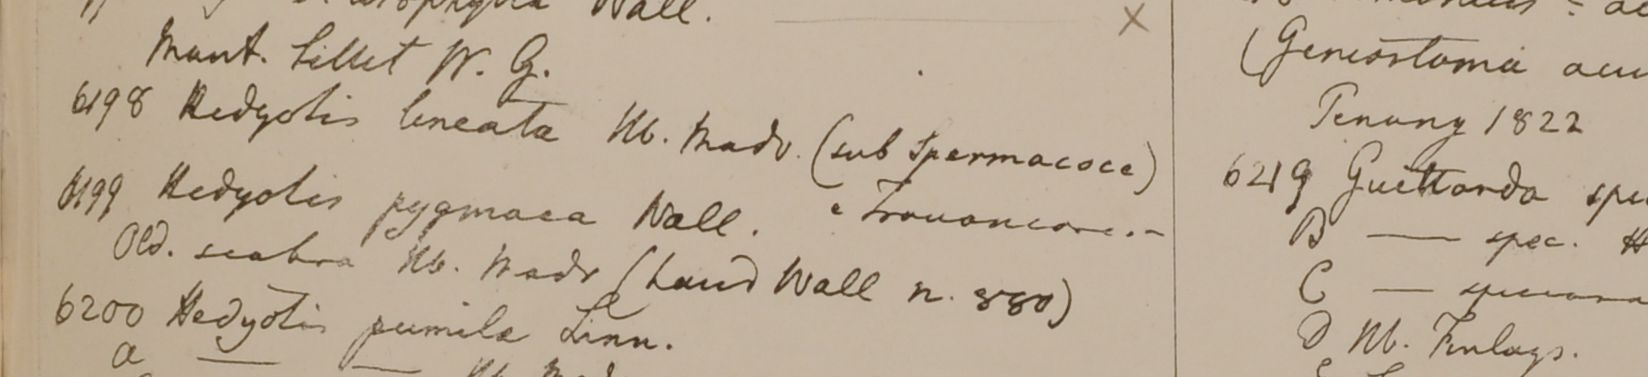 Wall.
Mont. Sillet W. G.
6198 Hedyotis lineata Hb. Madr. (sub Spermacoce)
6199 Hedyotis pygmaea Wall. e Travancore.-
Old. scabra Hb. Madr (haud Wall n. 880)
6200 Hedyotis pumila Linn.
a — — Hb.
(Geniostoma acu
Penang 1822
6219 Guettarda spe
B — spec. H
C —
D Hb. Finlays.